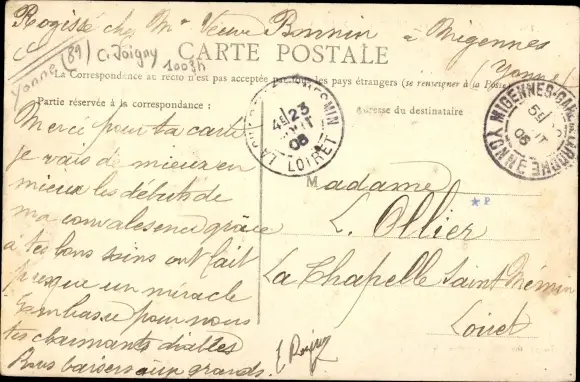 Rogissé chez Mme Veuve Bonnin à Migennes
(Yonne)
Yonne (89) C. Joigny 1003h
CARTE POSTALE
La Correspondance au recto n'est pas acceptée par les pays étrangers (se renseigner à la Poste
Partie réservée à la correspondance :
Adresse du destinataire
Merci pour ta carte
je vais de mieux en
mieux les débuts de
ma convalescence grâce
à tes bons soins ont fait
presque un miracle
Embasse pour nous
tes charmants diables
Bons baisers aux grands.
LA CHAPELLE ST MESMIN
4E 23
AOUT
06
LOIRET
MIGENNES-GARE DE LAROCHE
5E
06
YONNE
Madame
L. Ollier
La Chapelle Saint Mémin
Loiret
* P